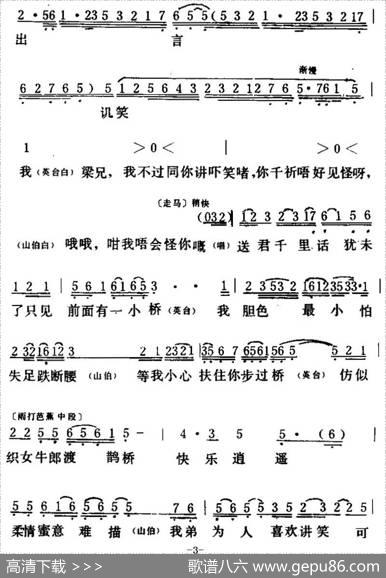 2·561·235 2 3 2 1 7 6 5 5 5 3 2 3 5 2 3 2 1 7
出 言
渐慢
6 2 7 6 5 ) 5 1 2 5 6 4 3 2 3 2 1 2 7 6 5·761 5
讥笑
1 >0< >0<
我(英台白)梁兄，我不过同你讲吓笑啫，你千祈唔好见怪呀，
〔走马〕稍快
(032) 1 2 3 2 317 6 1 5 6
(山伯白)哦哦，咁我唔会怪你嘅(唱)送君千里话 犹未
1 2 1 5 6 1 6 5 3 · · 2 3532 16123533·1
了只见 前面有一小桥(英台) 我 胆色 最小怕
2 321612 3 2 1 2 2321 1 7 6 7 6561 5 6 1 5 5 2 1
失足跌断腰 (山伯) 等我小心 扶住你步过桥(英台) 仿似
〔雨打芭蕉 中段〕
2 2 5 5 6 5 6 1 5 - 4·3 5 5·(6)
织女牛郎渡 鹊桥 快乐逍 遥
5 6 1 6 5 6 5 6 5 4 5 2 7 6 5 5 1 6 5 6 1 2
柔情蜜意 难描(山伯)我弟 为人 喜欢讲笑 可
-3-
高清下载 >>> 歌谱八六 www.gepu86.com